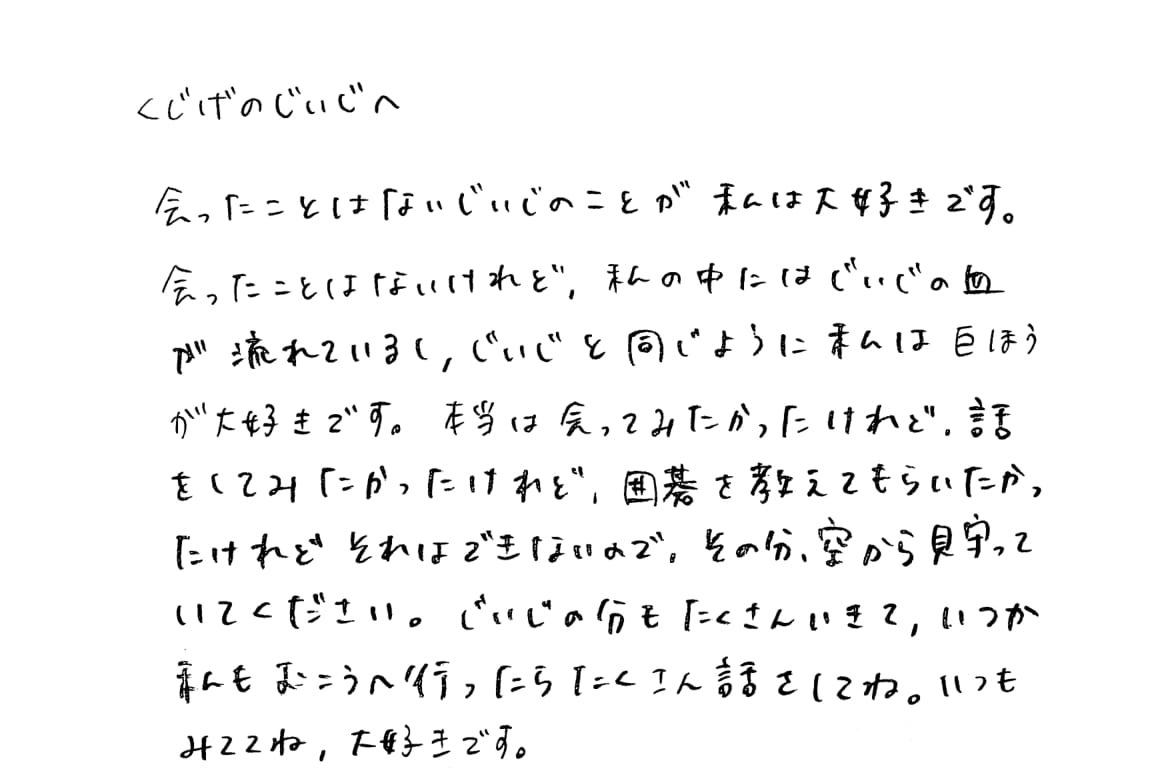 くじげのじいじへ
会ったことはないじいじのことが私は大好きです。
会ったことはないけれど、私の中にはじいじの血
が流れているし、じいじと同じように私は巨ほう
が大好きです。本当は会ってみたかったけれど、話
をしてみたかったけれど、囲碁を教えてもらいたかっ
たけれどそれはできないので、その分、空から見守って
いてください。じいじの分もたくさんいきて、いつか
私もむこうへ行ったらたくさん話をしてね。いつも
みててね、大好きです。